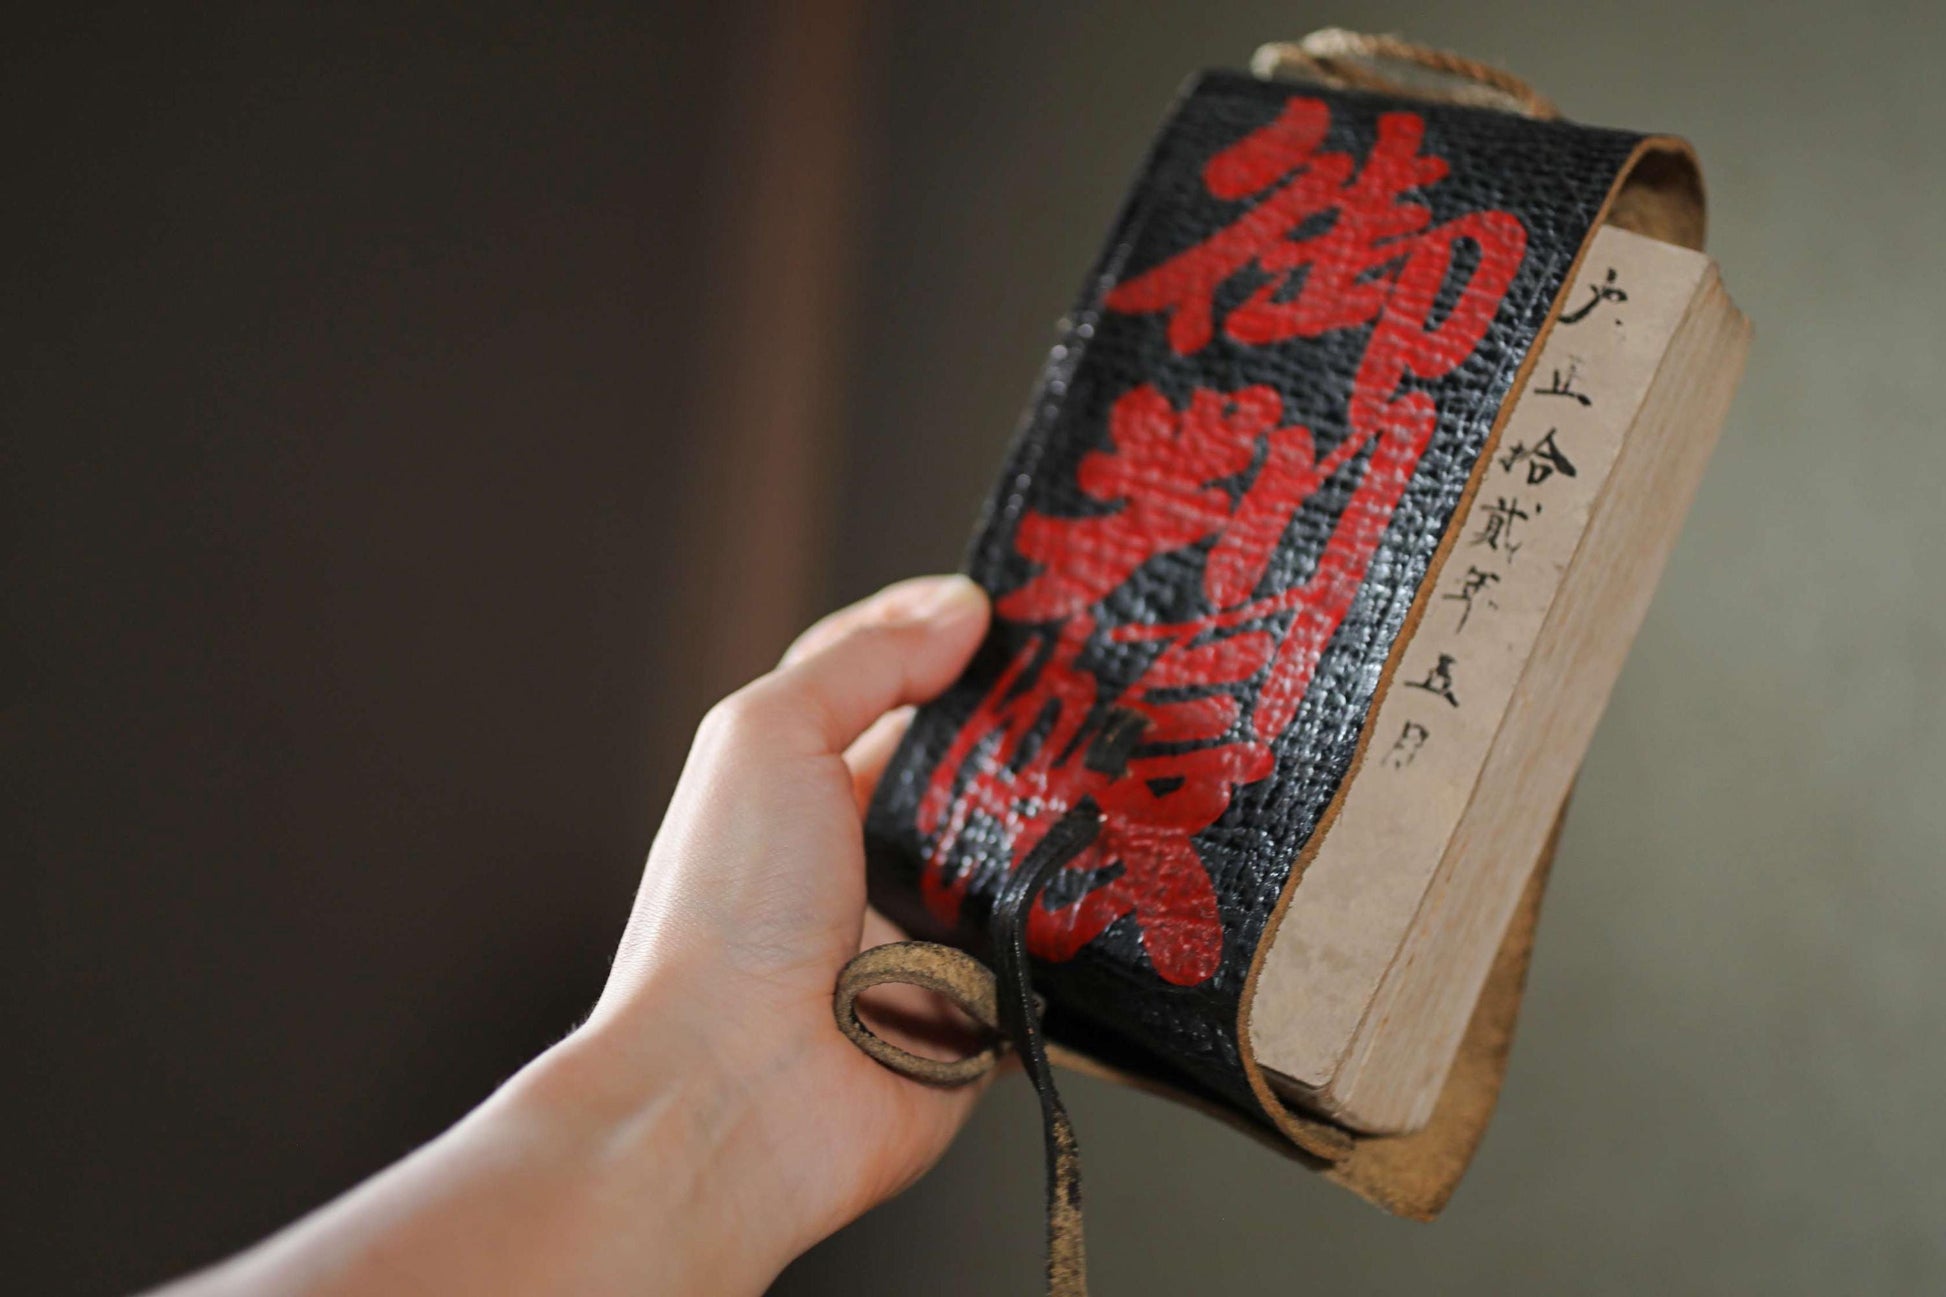 御判帳
大正拾貳年五月